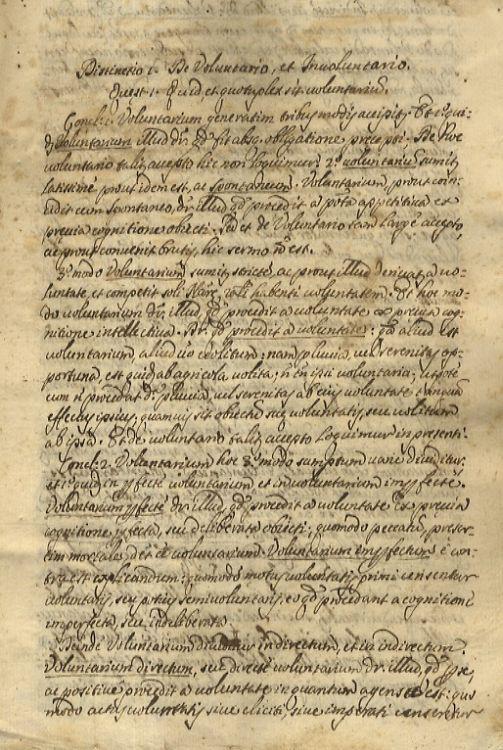 Distinctio 1. De Voluntario, et Involuntario.
Quest. 1. Quid et quotuplex sit voluntariũ.
Concl. 1. Voluntarium generatim tribus modis accipit; Et 1º qui-
voluntarium illud dr. qd fit absq. obligatione precepti. De hoc
voluntario taliṫ accepto hic non loquimur. 2º voluntariũ sumit,
latissimè prout idem est, ac spontaneum. Voluntarium, prout coin-
cidit cum spontaneo, dr. illud qd procedit a potã appetitiva ex
previa cognitione obiecti. Sed et de Voluntario tam largè accepto,
ac prout convenit brutis, hic sermo nõ est.
3º modo Voluntarium sumit strictè, ac prout illud derivat a vo-
luntate, et competit soli habenti voluntatem. Et hoc mo-
do voluntarium dr. illud, qd procedit a voluntate ex previa co-
gnitione intellectiva. Dr. qd procedit a voluntate: qa aliud est
voluntarium, aliud volitum: nam pluvia, vel serenitas op-
portuna est quid ab agricola volita; nõ ipsi voluntaria; utpote
cum nõ procedat pluvia, vel serenitas ab eius voluntate tanquã
effectus ipsius, quamvis sit obiectũ suę voluntatis, seu volitum
ab ipsa. Et de voluntario taliṫ accepto loquimur in presenti.
Concl. 2. Voluntarium hoc 3º modo sumptum varie dividitur.
et 1º quid. in pfectè voluntarium et in voluntarium impfectè.
Voluntarium pfectè dr. illud, qd procedit a voluntate ex previa
cognitione pfecta, seu deliberata obiecti; quomodo peccatũ, preser-
tim mortale, det eẽ voluntarium. Voluntarium impfectum è con-
tra est explicandum: quomodo motus voluntatis primi censentur
voluntarij, seu potius semivoluntarij, eo qd procedant a cognitione
imperfecta, seu indeliberata.
Deinde Voluntarium dividitur in directum, et in indirectum.
Voluntarium directum, seu directè voluntarium dr. illud, qd p se,
ac positivè procedit a voluntate in quantum agens est: quo
modo actus voluntatis sive eliciti, sive imperati censentur